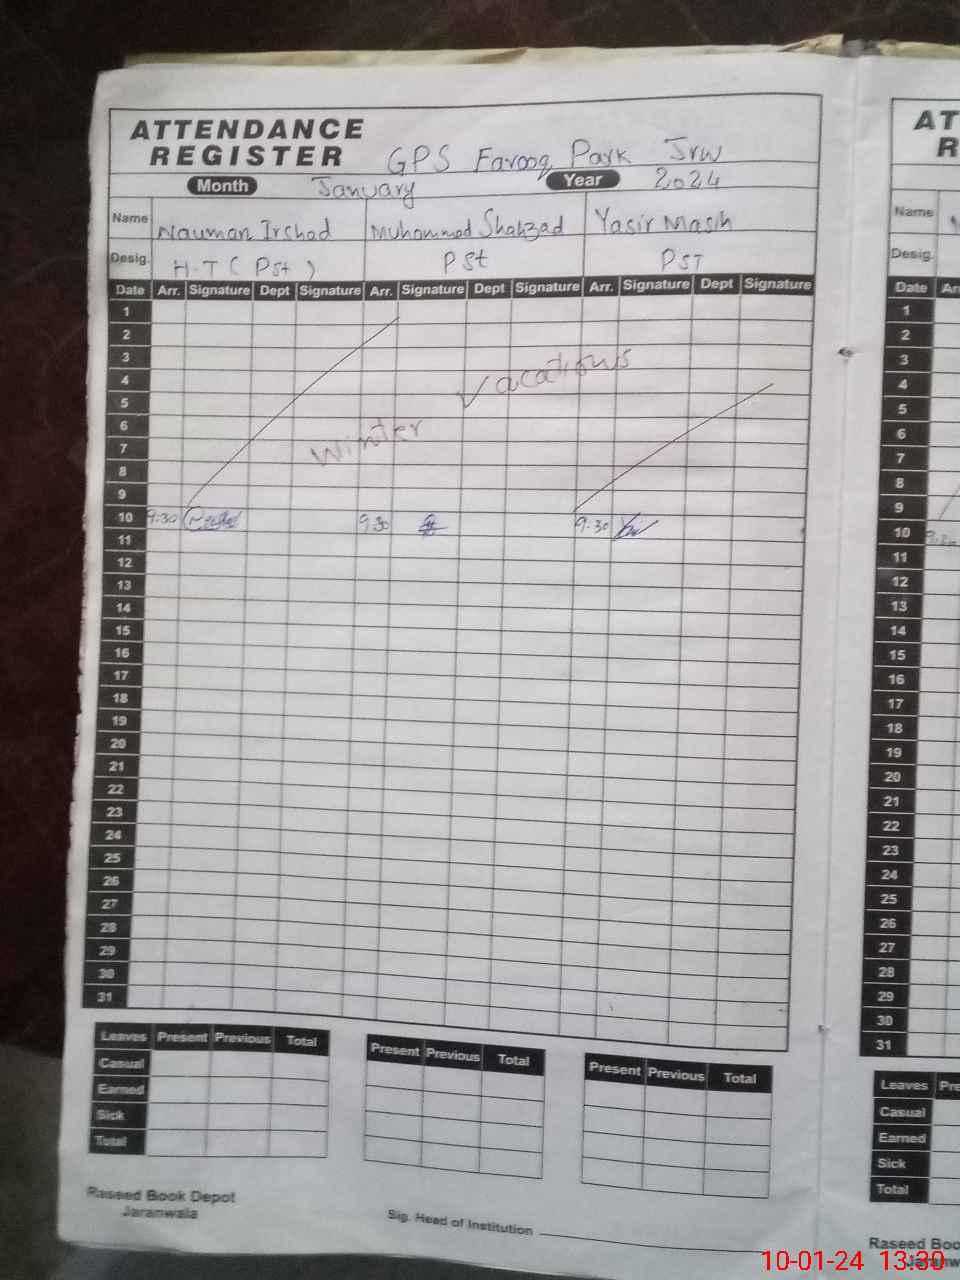 ATTENDANCE
REGISTER
GPS Farooq Park Jrw
Month January Year 2024
Name Nauman Irshad Muhammad Shahzad Yasir Masih
Desig. H-T (Pst) PSt PST
Date Arr. Signature Dept Signature Arr. Signature Dept Signature Arr. Signature Dept Signature
1
2
3
4
5
6
7
8
9
Winter Vacations
10 9:30 9:30 9:30
11
12
13
14
15
16
17
18
19
20
21
22
23
24
25
26
27
28
29
30
31
Leaves Present Previous Total Present Previous Total Present Previous Total
Casual
Earned
Sick
Total
Raseed Book Depot
Jaranwala
Sig. Head of Institution
AT
R
Name
Desig.
Date Arr
1
2
3
4
5
6
7
8
9
10
11
12
13
14
15
16
17
18
19
20
21
22
23
24
25
26
27
28
29
30
31
Leaves Pre
Casual
Earned
Sick
Total
Raseed Boo
10-01-24 13:30